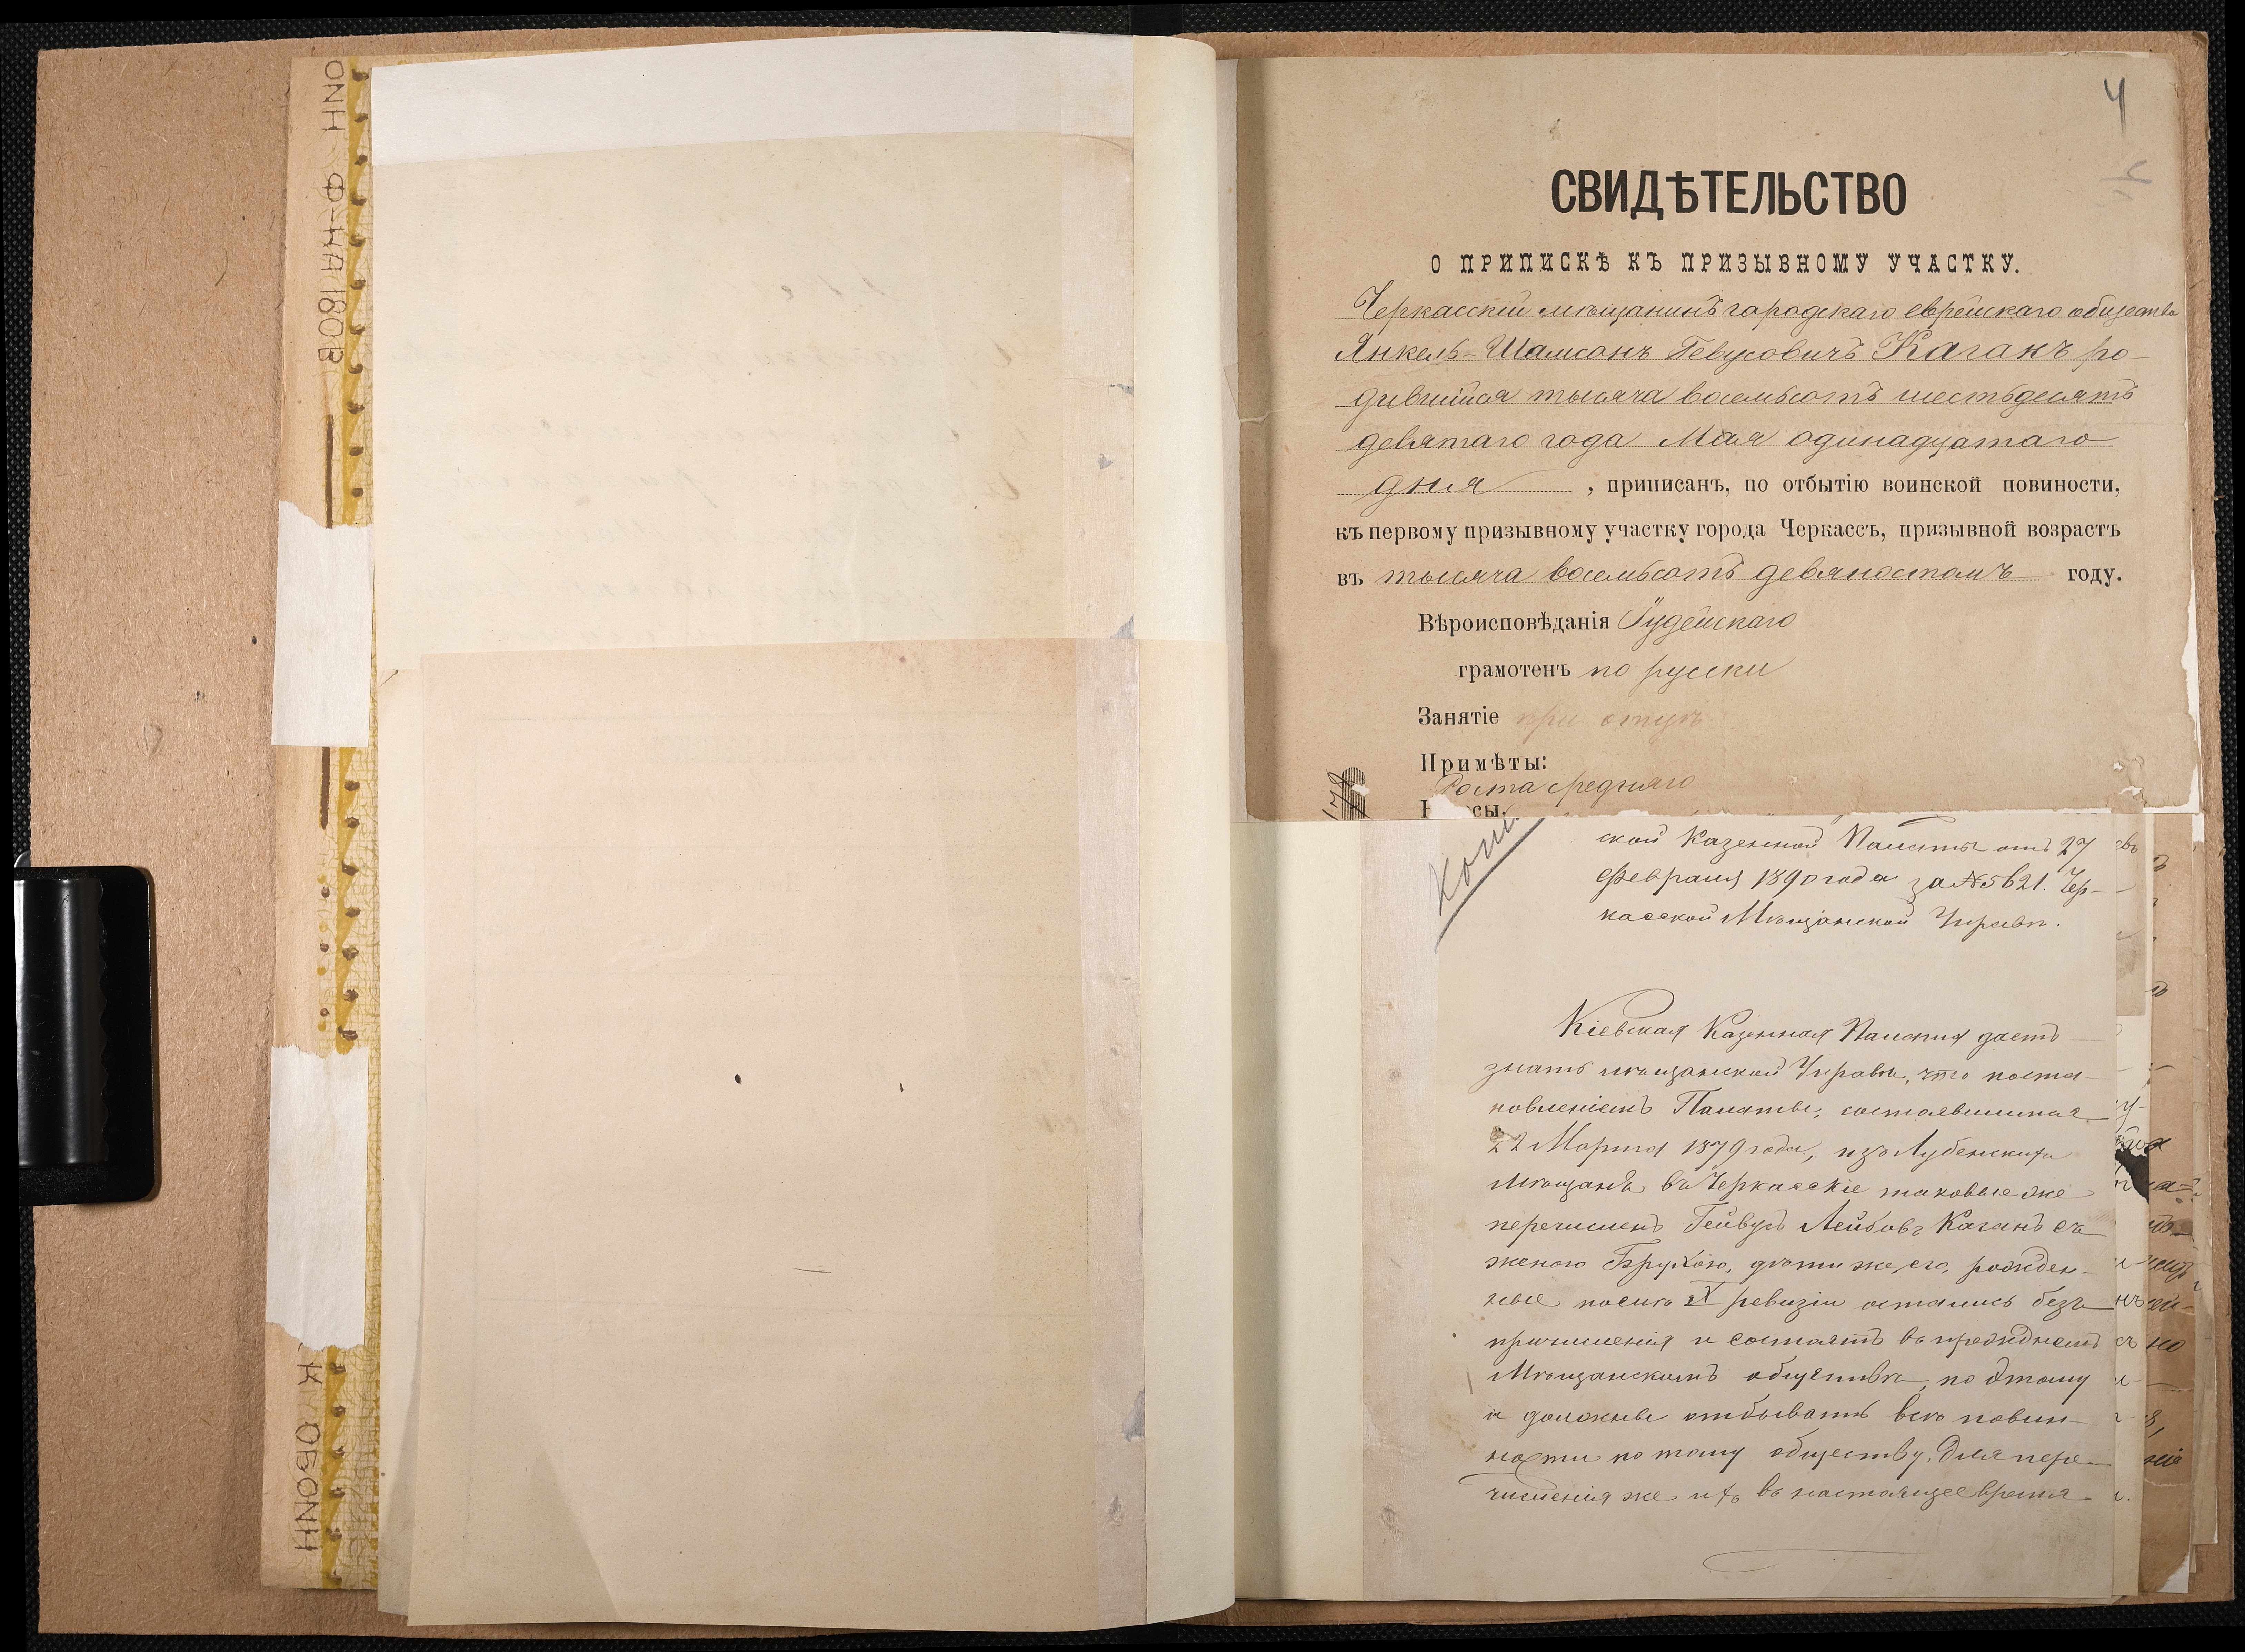 4
СВИДѢТЕЛЬСТВО
О ПРИПИСКѢ КЪ ПРИЗЫВНОМУ УЧАСТКУ.
Черкасскій мѣщанинъ городскаго еврейскаго общества
Янкель-Шамсонъ Гевусовичъ Каганъ ро-
дившійся тысяча восемьсотъ шестьдесятъ
девятаго года Мая одинадцатаго
дня , приписанъ, по отбытію воинской повиности,
къ первому призывному участку города Черкассъ, призывной возрастъ
въ тысяча восемьсотъ девяностомъ году.
Вѣроисповѣданія Іудейскаго
грамотенъ по русски
Занятіе при отцѣ
Примѣты:
Роста средняго
178
ской Казенной Палаты отъ 27
Февраля 1890 года за № 5621. Чер-
касской Мѣщанской Управѣ.
Кіевская Казенная Палата даетъ
знать мѣщанской Управѣ, что поста-
новленіемъ Палаты, состоявшимся
22 Марта 1879 года, изъ Лубенскихъ
мѣщанъ въ Черкасскіе таковые же
перечисленъ Гейвусъ Лейбовъ Каганъ съ
женою Брухою, дѣти же его, рожден-
ные послѣ X ревизіи остались безъ
причисленія и состоятъ въ прежднемъ
Мѣщанскомъ обществѣ, по этому
и должны отбывать всѣ повин-
ности по тому обществу. Для пере-
численія же ихъ въ настоящее время